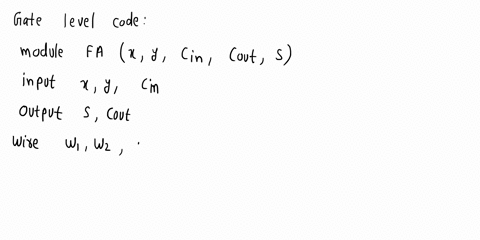 Gate level code:
module FA (x, y, Cin, Cout, S)
input x, y, Cin
Output S, Cout
Wire W1, W2, .